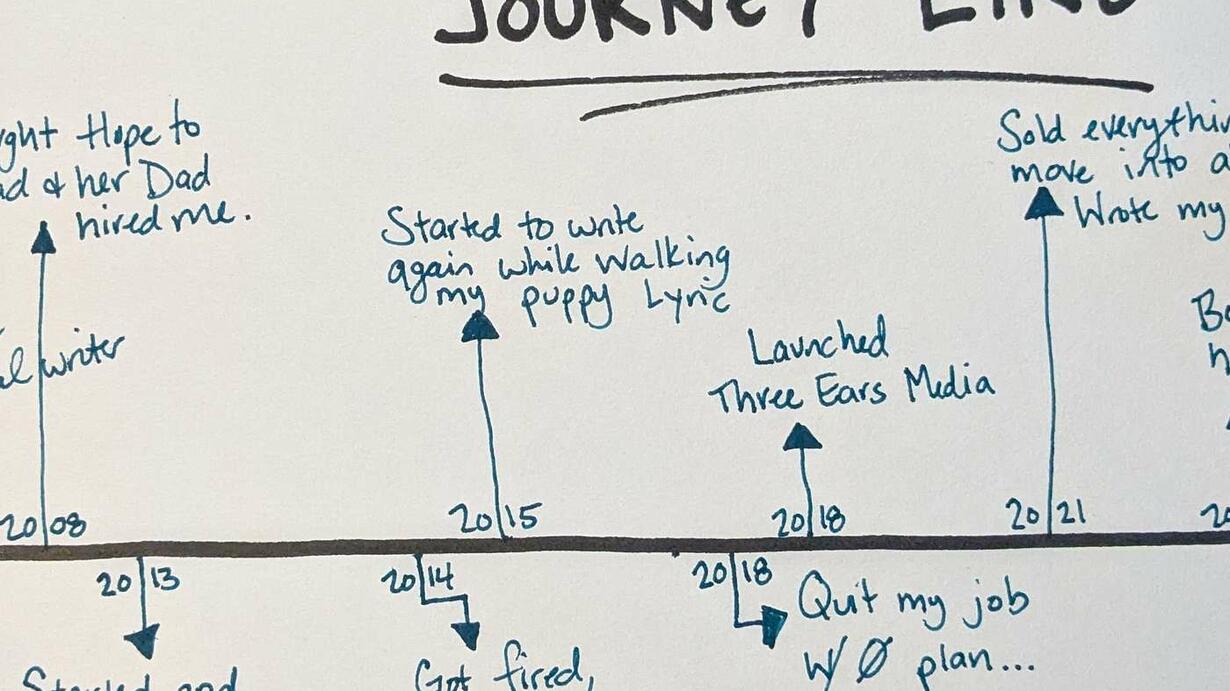 JOURNEY LINE
Hope to
& her Dad
hired me.
writer
2008
Started to write
again while walking
my puppy Lyric
2015
Launched
Three Ears Media
2018
Sold
move into
Wrote my
2021
2013
Started and
2014
Got fired,
2018
Quit my job
w/ Ø plan...